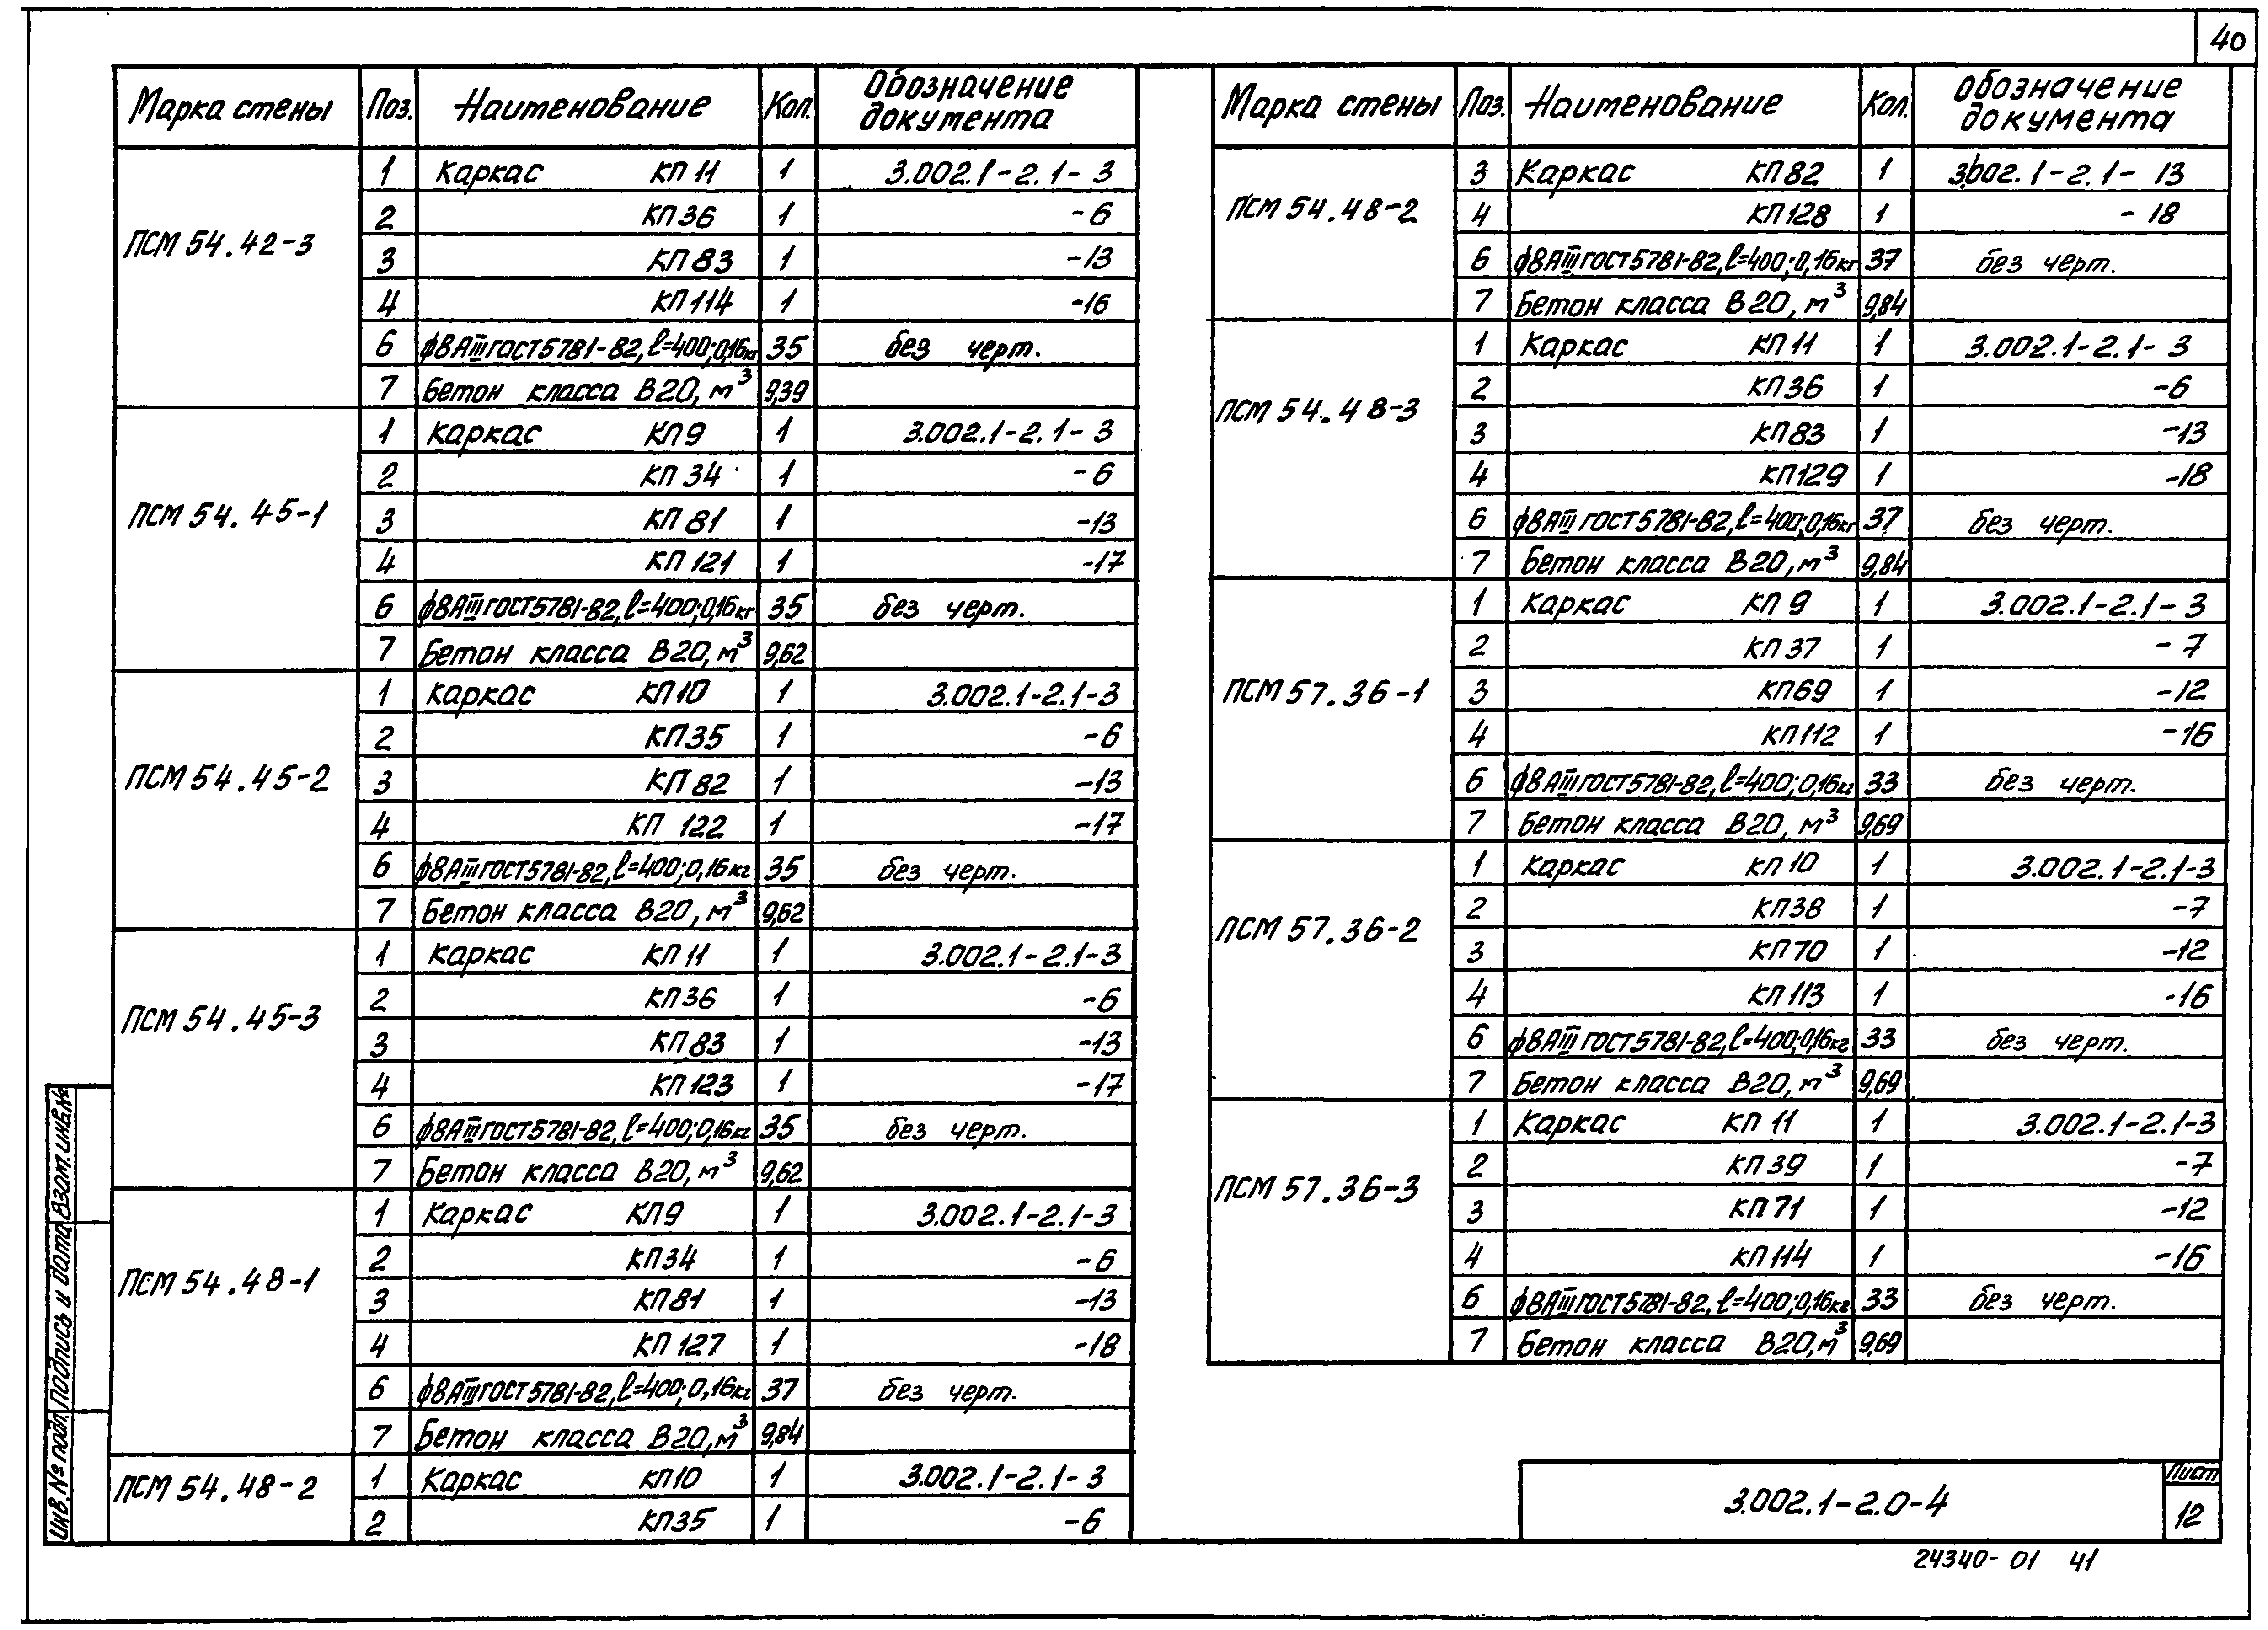 40
Марка стены Поз. Наименование Кол. Обозначение документа
ПСМ 54.42-3
1 Каркас КП 11 1 3.002.1-2.1-3
2 КП36 1 -6
3 КП83 1 -13
4 КП114 1 -16
6 ф8АIII ГОСТ5781-82, ℓ=400; 0,16кг 35 без черт.
7 Бетон класса В20, м³ 9,39
ПСМ 54.45-1
1 Каркас КП9 1 3.002.1-2.1-3
2 КП 34 1 -6
3 КП 81 1 -13
4 КП 121 1 -17
6 ф8АIII ГОСТ5781-82, ℓ=400; 0,16кг 35 без черт.
7 Бетон класса В20, м³ 9,62
ПСМ 54.45-2
1 Каркас КП10 1 3.002.1-2.1-3
2 КП35 1 -6
3 КП 82 1 -13
4 КП 122 1 -17
6 ф8АIII ГОСТ5781-82, ℓ=400; 0,16кг 35 без черт.
7 Бетон класса В20, м³ 9,62
ПСМ 54.45-3
1 Каркас КП 11 1 3.002.1-2.1-3
2 КП36 1 -6
3 КП83 1 -13
4 КП 123 1 -17
6 ф8АIII ГОСТ5781-82, ℓ=400; 0,16кг 35 без черт.
7 Бетон класса В20, м³ 9,62
ПСМ 54.48-1
1 Каркас КП9 1 3.002.1-2.1-3
2 КП34 1 -6
3 КП81 1 -13
4 КП 127 1 -18
6 ф8АIII ГОСТ5781-82, ℓ=400; 0,16кг 37 без черт.
7 Бетон класса В20, м³ 9,84
ПСМ 54.48-2
1 Каркас КП10 1 3.002.1-2.1-3
2 КП35 1 -6
Марка стены Поз. Наименование Кол. Обозначение документа
ПСМ 54.48-2
3 Каркас КП82 1 3.002.1-2.1-13
4 КП128 1 -18
6 ф8АIII ГОСТ5781-82, ℓ=400; 0,16кг 37 без черт.
7 Бетон класса В20, м³ 9,84
ПСМ 54.48-3
1 Каркас КП11 1 3.002.1-2.1-3
2 КП36 1 -6
3 КП83 1 -13
4 КП129 1 -18
6 ф8АIII ГОСТ5781-82, ℓ=400; 0,16кг 37 без черт.
7 Бетон класса В20, м³ 9,84
ПСМ 57.36-1
1 Каркас КП 9 1 3.002.1-2.1-3
2 КП 37 1 -7
3 КП69 1 -12
4 КП112 1 -16
6 ф8АIII ГОСТ5781-82, ℓ=400; 0,16кг 33 без черт.
7 Бетон класса В20, м³ 9,69
ПСМ 57.36-2
1 Каркас КП 10 1 3.002.1-2.1-3
2 КП38 1 -7
3 КП70 1 -12
4 КП113 1 -16
6 ф8АIII ГОСТ5781-82, ℓ=400; 0,16кг 33 без черт.
7 Бетон класса В20, м³ 9,69
ПСМ 57.36-3
1 Каркас КП 11 1 3.002.1-2.1-3
2 КП39 1 -7
3 КП71 1 -12
4 КП114 1 -16
6 ф8АIII ГОСТ5781-82, ℓ=400; 0,16кг 33 без черт.
7 Бетон класса В20, м³ 9,69
Инв. № подл. Подпись и дата Взам. инв. №
3.002.1-2.0-4
Лист
12
24340-01 41